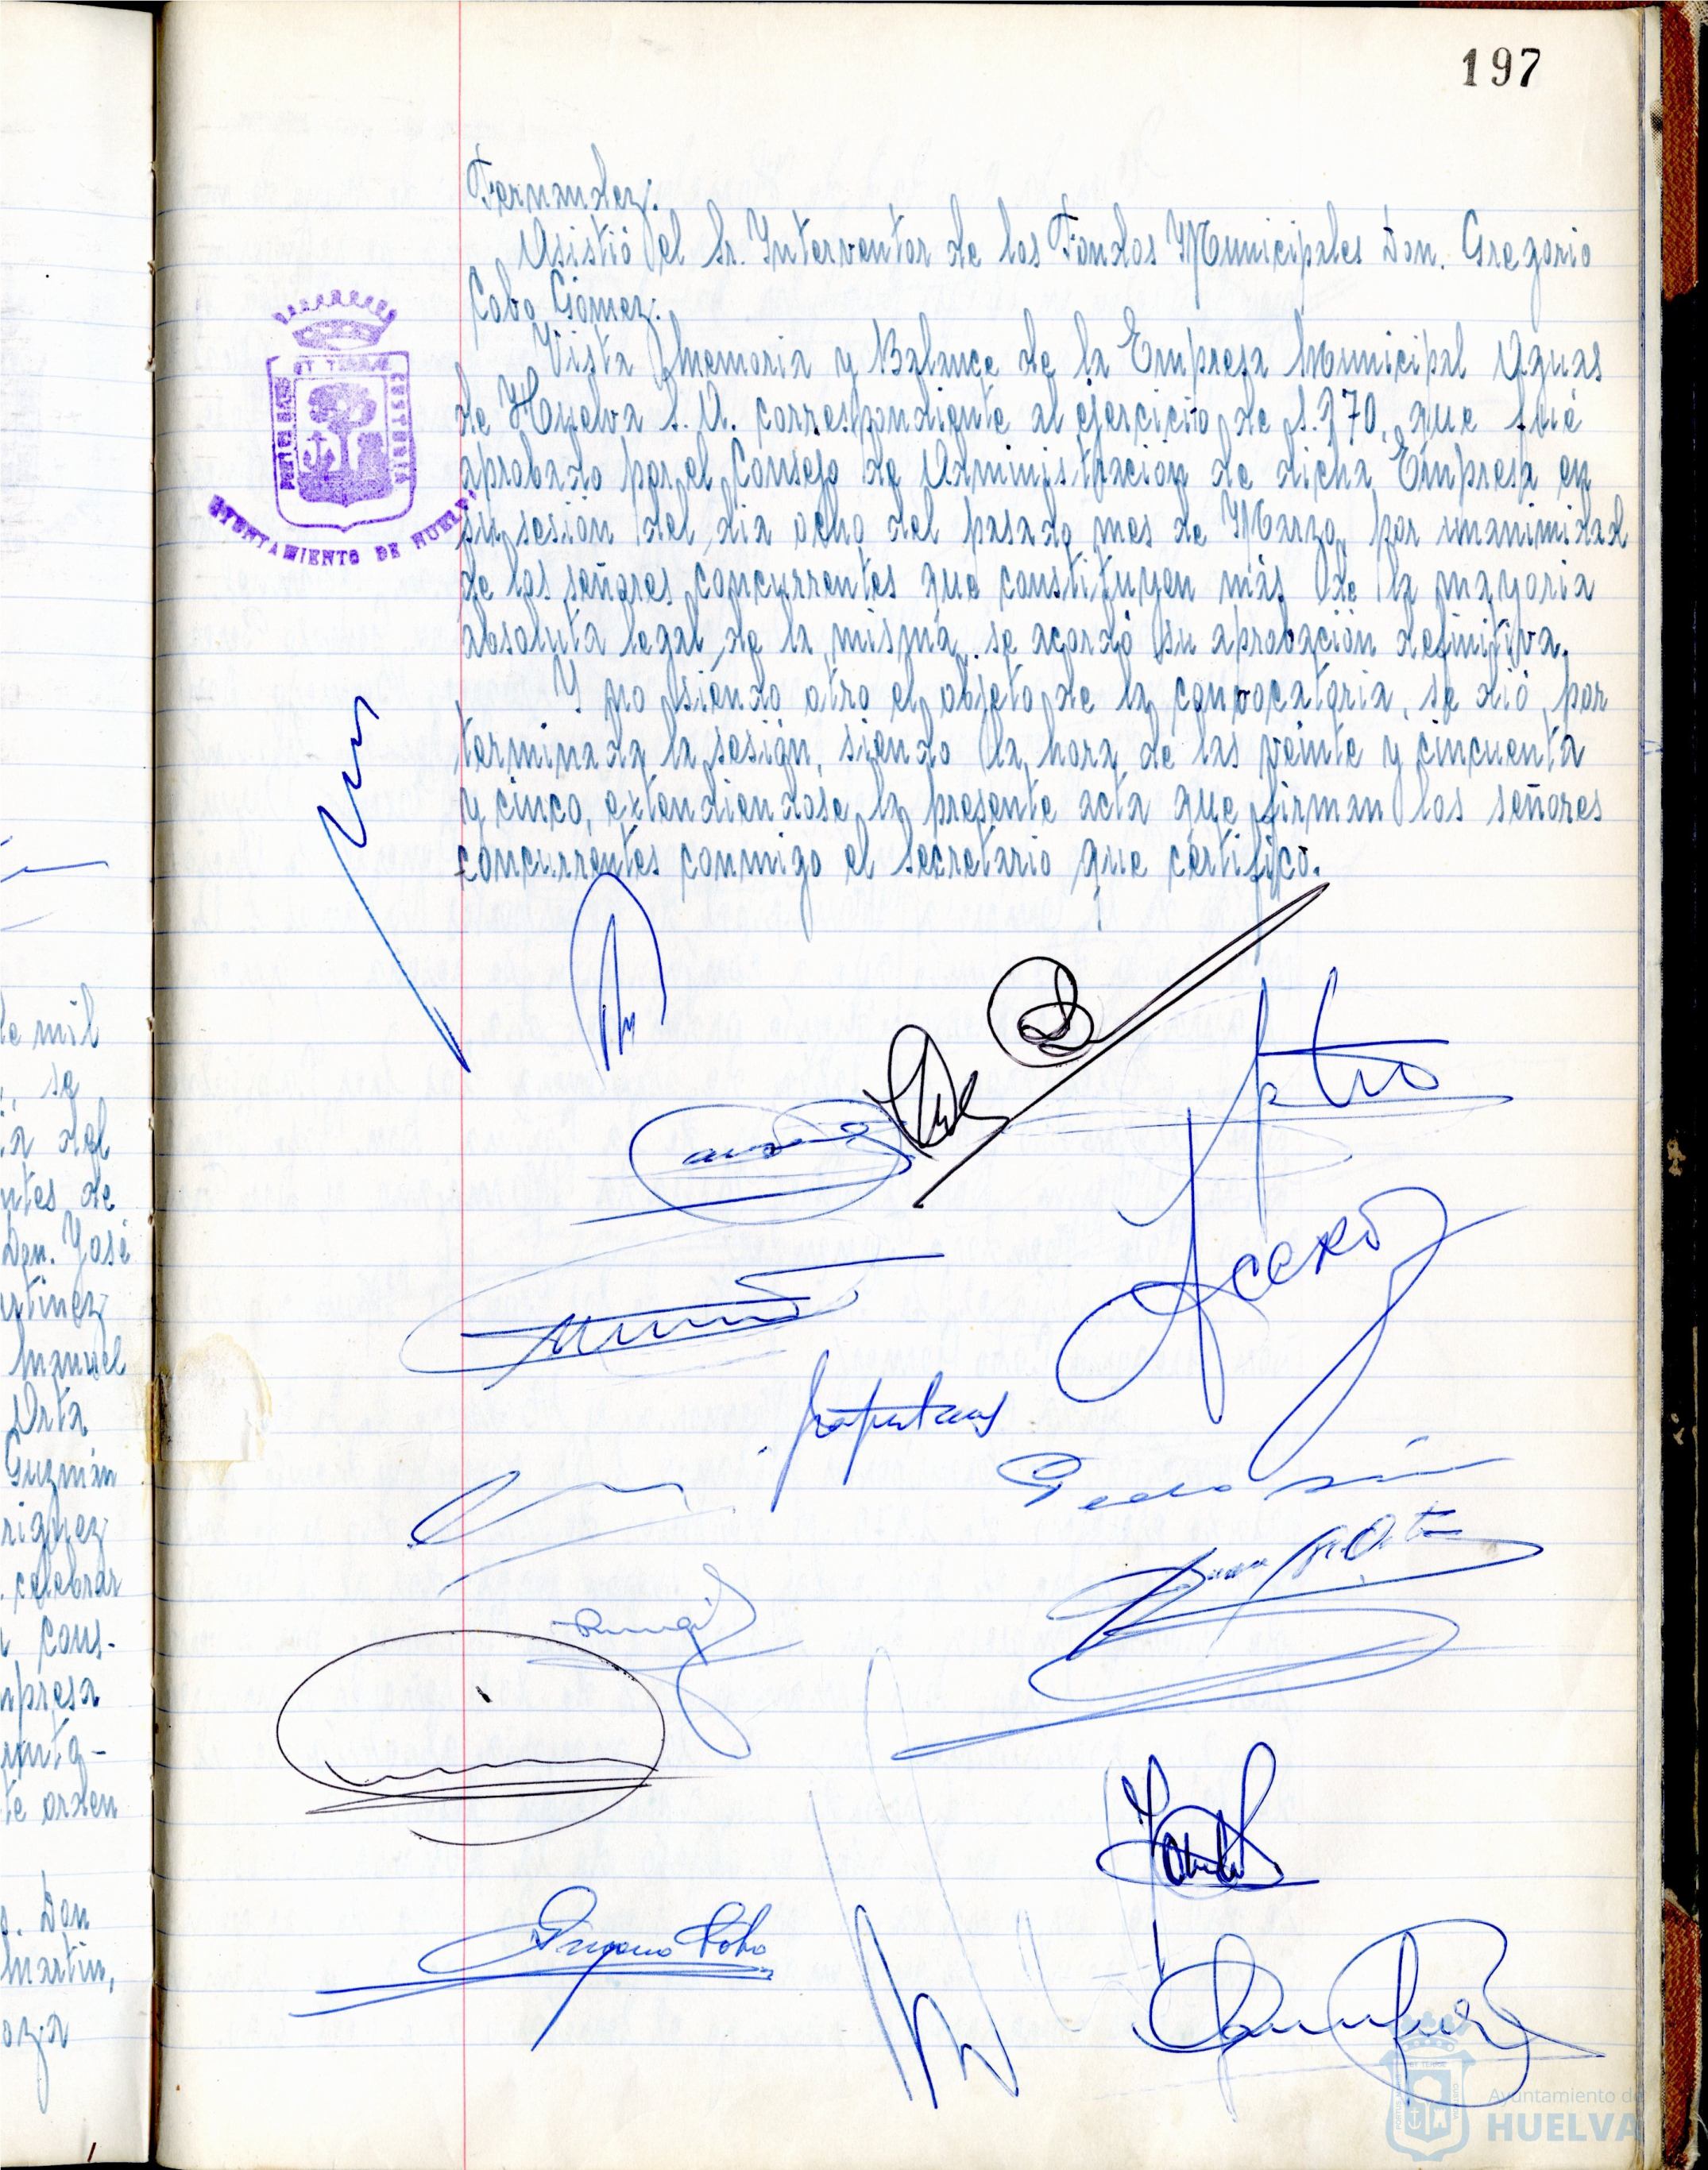 197
Fernandez.
Asistió el Sr. Interventor de los Fondos Municipales Don. Gregorio
Cobo Gómez.
Vista Memoria y Balance de la Empresa Municipal Aguas
de Huelva S.A. correspondiente al ejercicio de 1.970, que fué
aprobado por el Consejo de Administración de dicha Empresa en
su sesión del dia ocho del pasado mes de Marzo, por unanimidad
de los señores concurrentes que constituyen más de la mayoria
absoluta legal de la misma, se acordó su aprobación definitiva.
Y no siendo otro el objeto de la convocatoria, se dió por
terminada la sesión, siendo la hora de las veinte y cincuenta
y cinco, extendiendose la presente acta que firman los señores
concurrentes conmigo el Secretario que certifico.
ET TERRAE CUSTODIA
AYUNTAMIENTO DE HUELVA
Acero
le mil
se
ia del
ntes de
Don. José
artinez
Manuel
Orta
Guzmán
riguez
celebrar
cons-
mpresa
te orden
Don
Martin,
oza
Ayuntamiento de
HUELVA